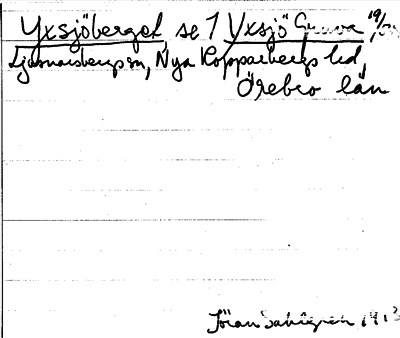 Yxsjöberget, se 1 Yxsjö Gruva, 19/
Ljusnarsbergs sn, Nya Kopparbergs hd,
Örebro län
Jöran Sahlgren 1913